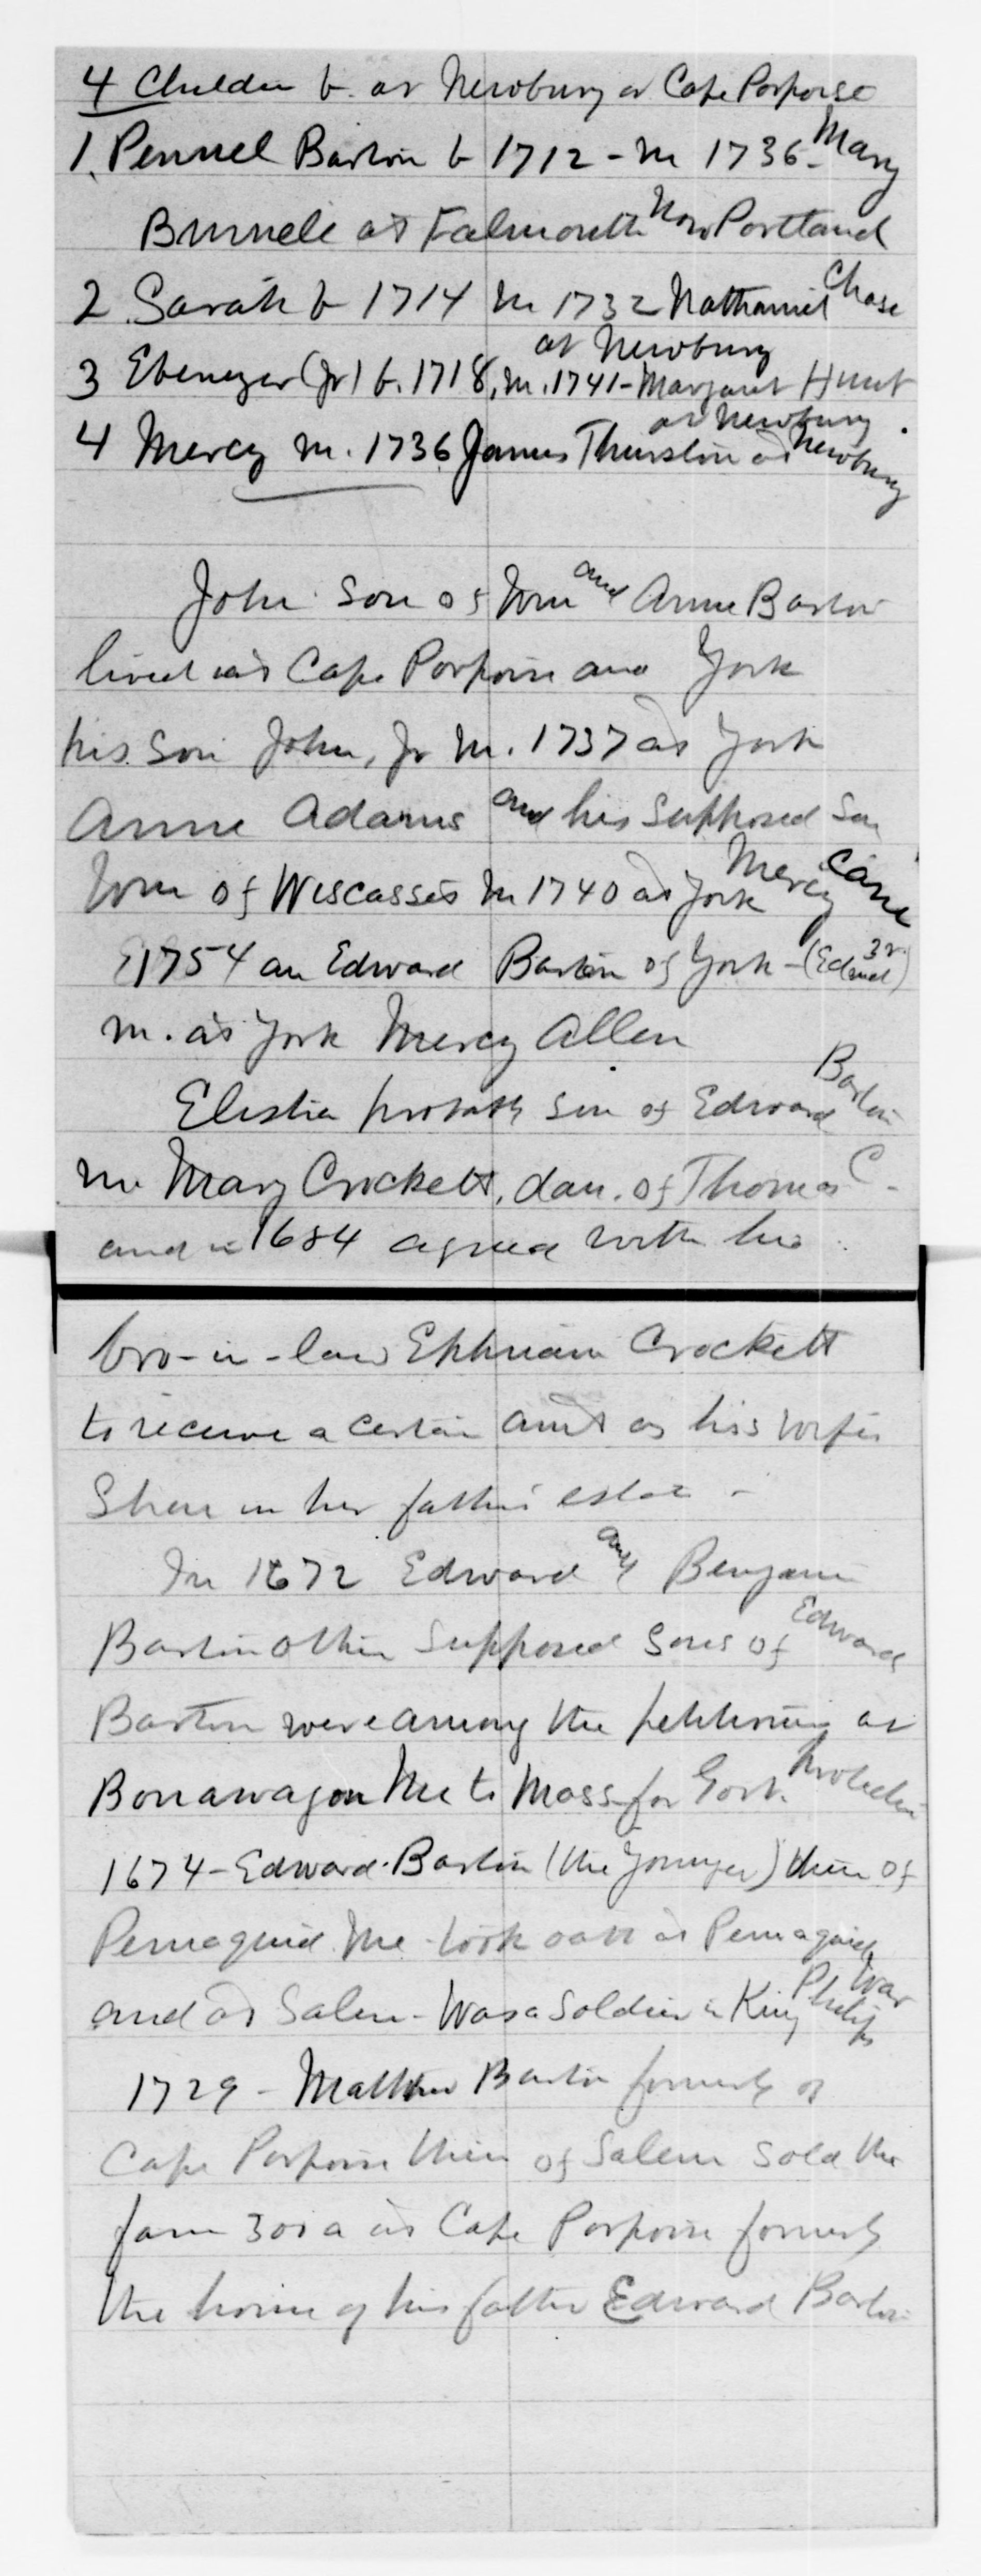 4 Children b. at Newbury or Cape Porpoise
1. Pennel Barton b 1712 - m 1736 - Mary
Brunele at Falmouth Now Portland
2 Sarah b 1714 m 1732 Nathaniel Chase
at Newbury
3 Ebenezer (Jr) b. 1718, m. 1741 - Margaret Hunt
at Newbury.
4 Mercy m. 1736 James Thurston at Newbury
John son of Wm and Anne Barton
lived at Cape Porpoise and York
his son John, Jr m. 1737 at York
Anne Adams and his supposed son
Wm of Wiscasset m 1740 at York Mercy Cane
1754 an Edward Barton of York - (Edward 3r)
m. at York Mercy Allen
Elisha probably son of Edward Barton
m Mary Crockett, dau. of Thomas C -
and in 1684 agreed with his
bro-in-law Ephriam Crockett
to receive a certain amt as his wifes
Share in her father's estate -
In 1672 Edward and Benjamin
Barton other supposed sons of Edward
Barton were among the petitioning at
Bonawagon Me to Mass for Govt. Protection
1674 - Edward Barton (the younger) then of
Pemaquid Me took oath at Pemaquid
and at Salem - Was a Soldier in King Philips War
1729 - Matthew Barton formerly of
Cape Porpoise then of Salem sold the
farm 300 a at Cape Porpoise formerly
the home of his father Edward Barton